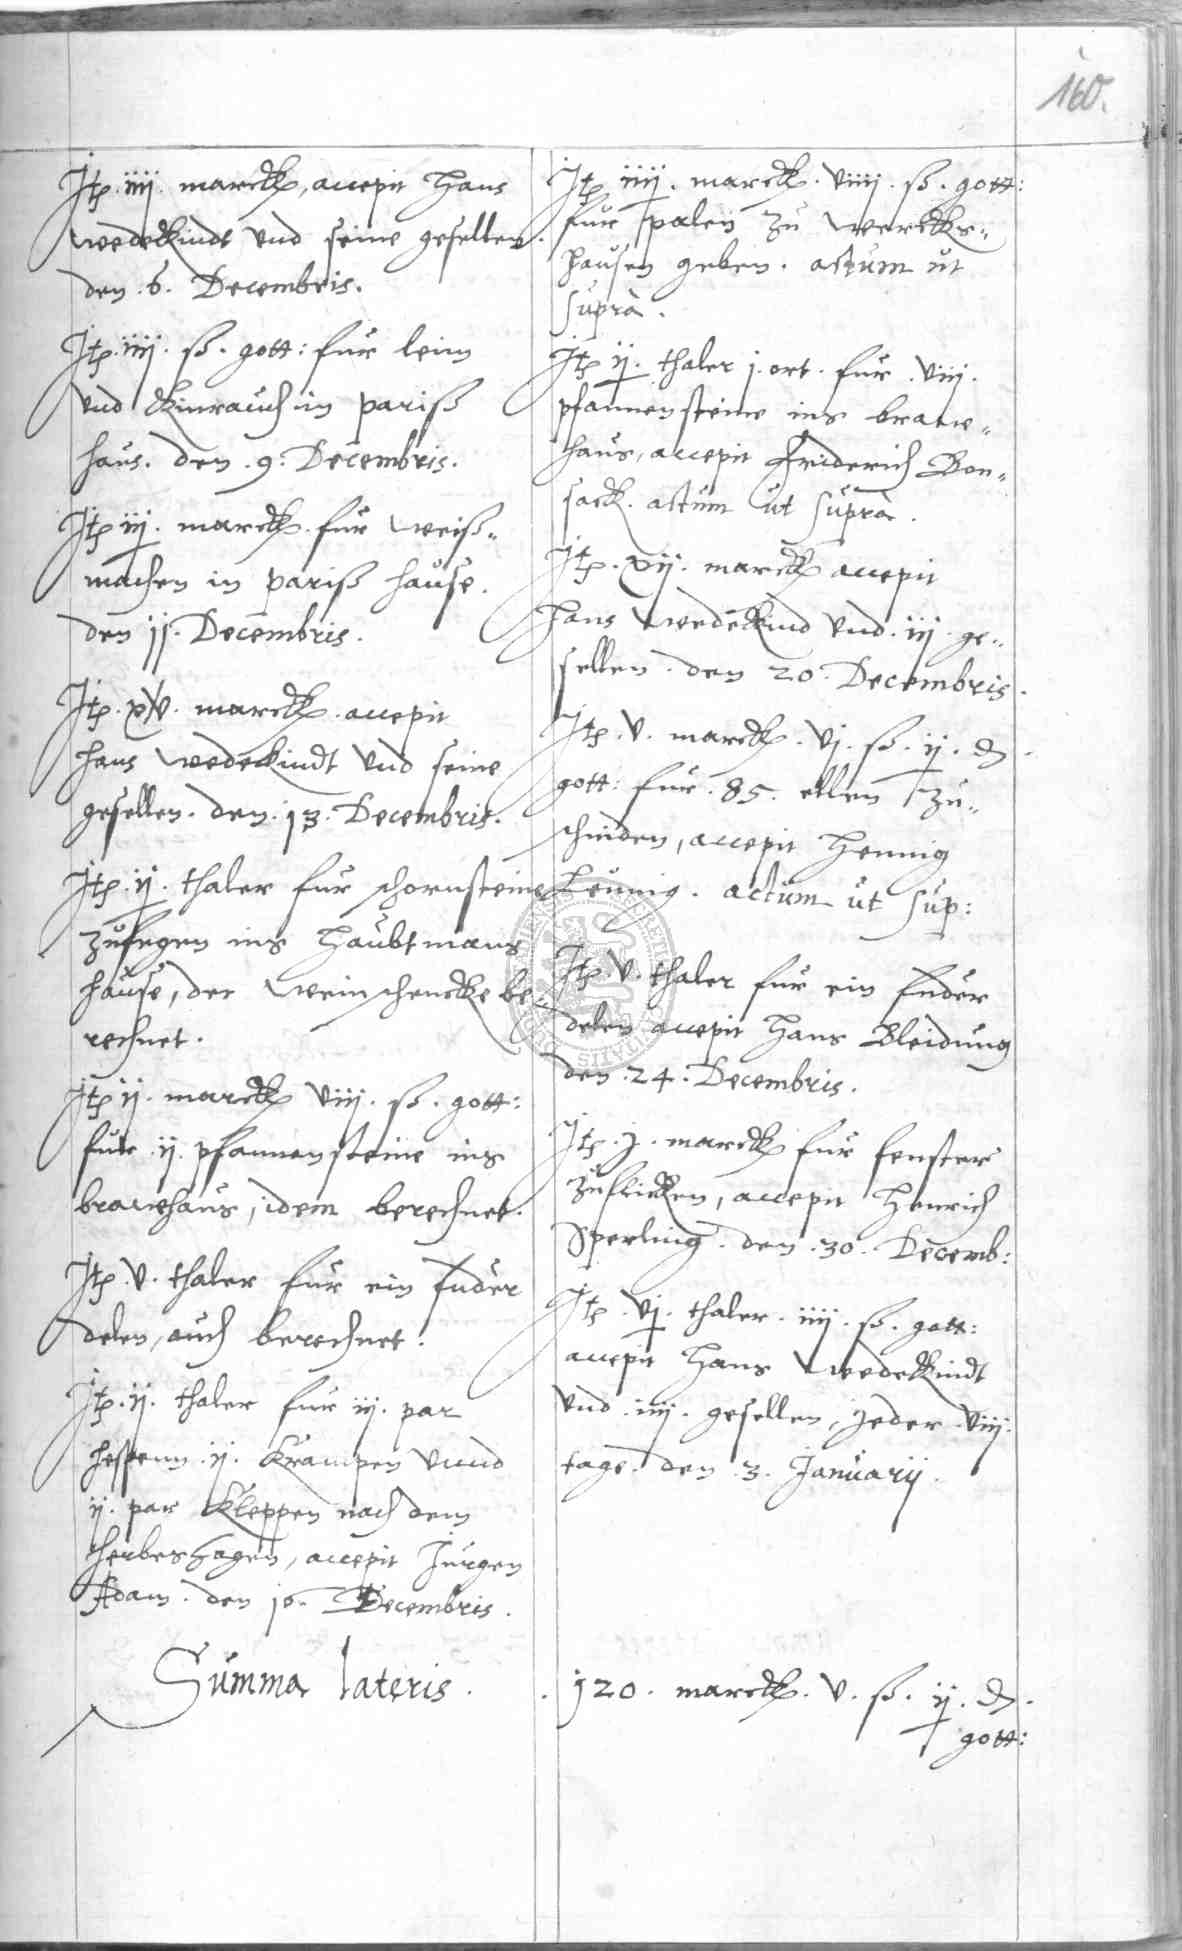 160.
Itp. iiij. marck, accepit Hans
wedekindt vnd seine gesellen.
den .6. Decembris.
Itp. iiij. ß. gott: fur leim
vnd Kinrauch in pariß
haus. den .9. Decembris.
Itp iij. marck. fur weiß„
machen in pariß hause.
den 11. Decembris.
Itp. xv. marck. accepit
hans wedekindt vnd seine
gesellen. den .13. Decembris.
Itp. ij. thaler fur schornsteine
zufegen ins Haubtmans
hause, der weinschencke be„
rechnet.
Itp ij. marck viij. ß. gott:
fur .ij. pfannensteine ins
brawhaus, idem berechnet.
Itp. v. thaler fur ein fuder
delen, auch berechnet.
Itp. ij. thaler fur iij. par
hespenn .ij. Krampen vnnd
ij. par Kleppen nach dem
herbershagen, accepit Jurgen
Adam. den 16. Decembris.
Itp iiij. marck. viiij. ß. gott:
fur palen zu wercks„
hausen geben. actum ut
supra.
Itp ij. thaler j. ort. fur .viij.
pfannensteine ins braw„
haus, accepit Friderich Bon„
sack. actum ut supra.
Itp. xij. marck accepit
Hans wedekind vnd .iij. ge„
sellen. den 20. Decembris.
Itp. v. marck. vj. ß. ij. d.
gott: fur .85. ellen zu„
schniden, accepit Hennig
Leunig. actum ut sup:
Itp. v. thaler fur ein fuder
delen accepit Hans Bleidung
den .24. Decembris.
Itp. j. marck fur fenster
zuflicken, accepit Henrich
Sperling. den .30. Decemb:
Itp. vj. thaler. iiij. ß. gott:
accepit Hans wedekindt
vnd .iiij. gesellen, jeder .viij.
tage. den .3. Januarij.
Summa lateris. . 120. marck. v. ß. ij. d.
gott: